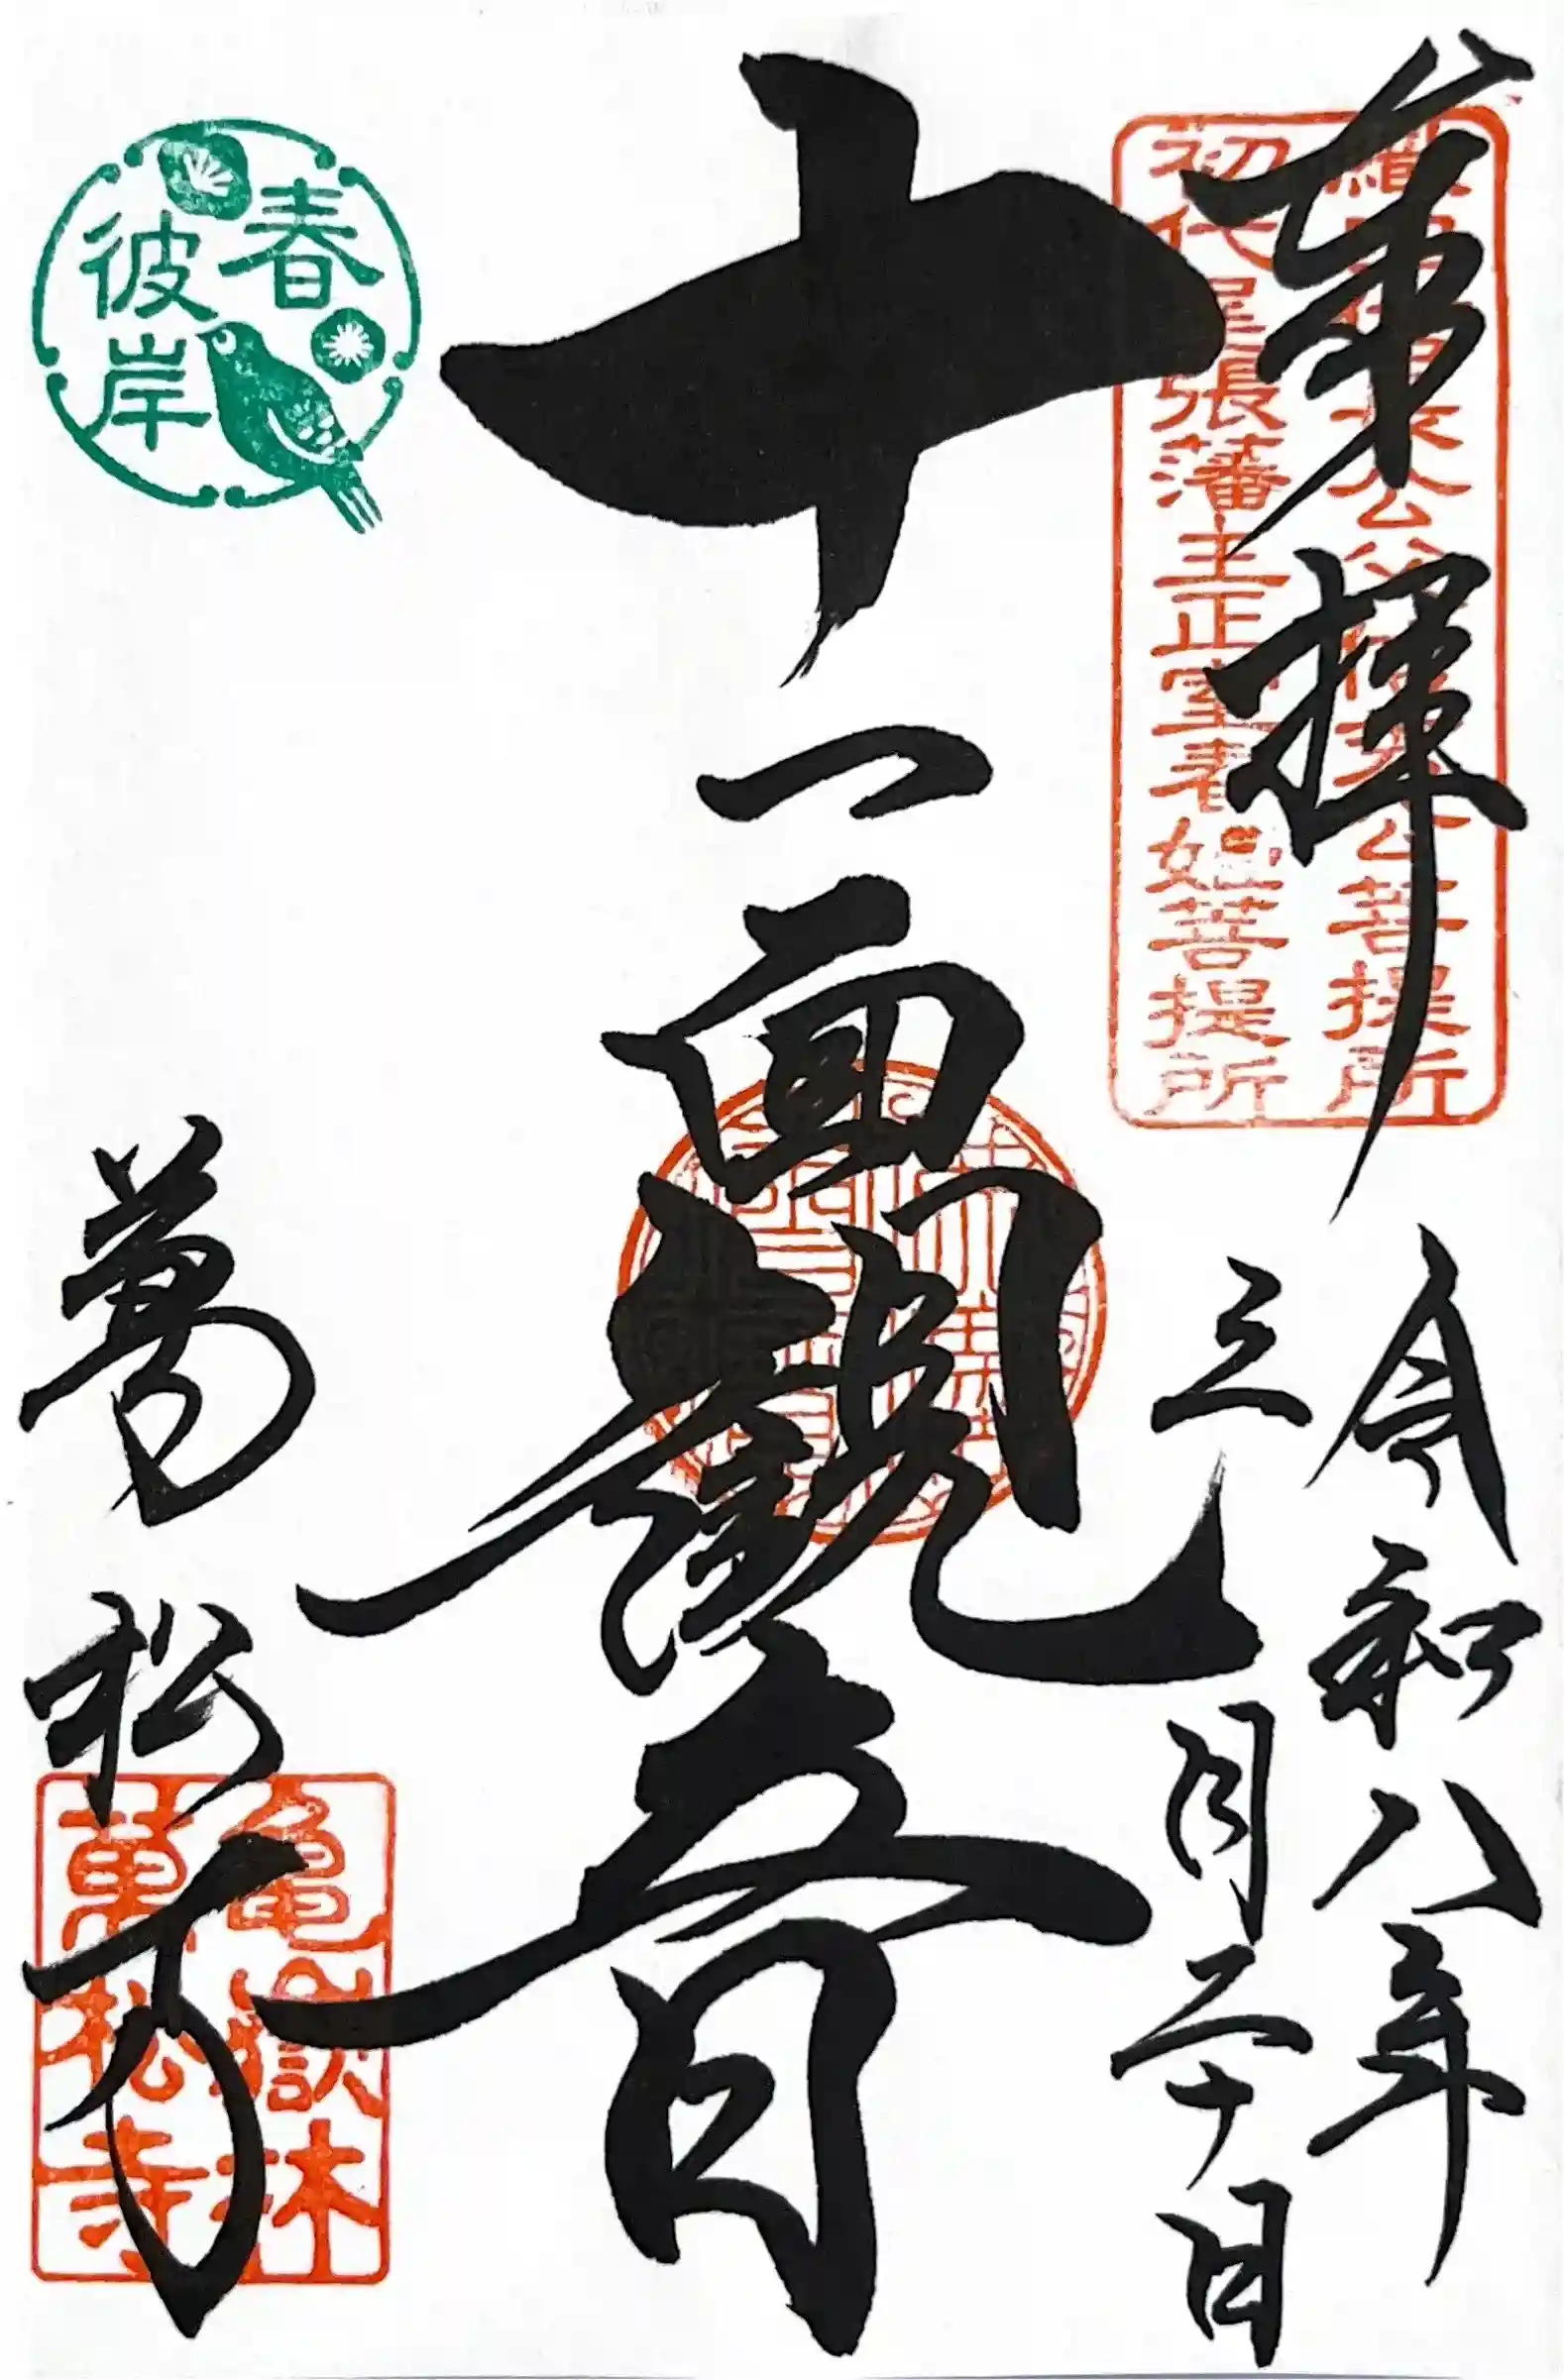 奉拝
織田信長公父信秀公菩提所
初代尾張藩主正室春姫菩提所
令和八年
三月二十日
十一面観世音
春彼岸
萬松寺
亀嶽林
萬松寺